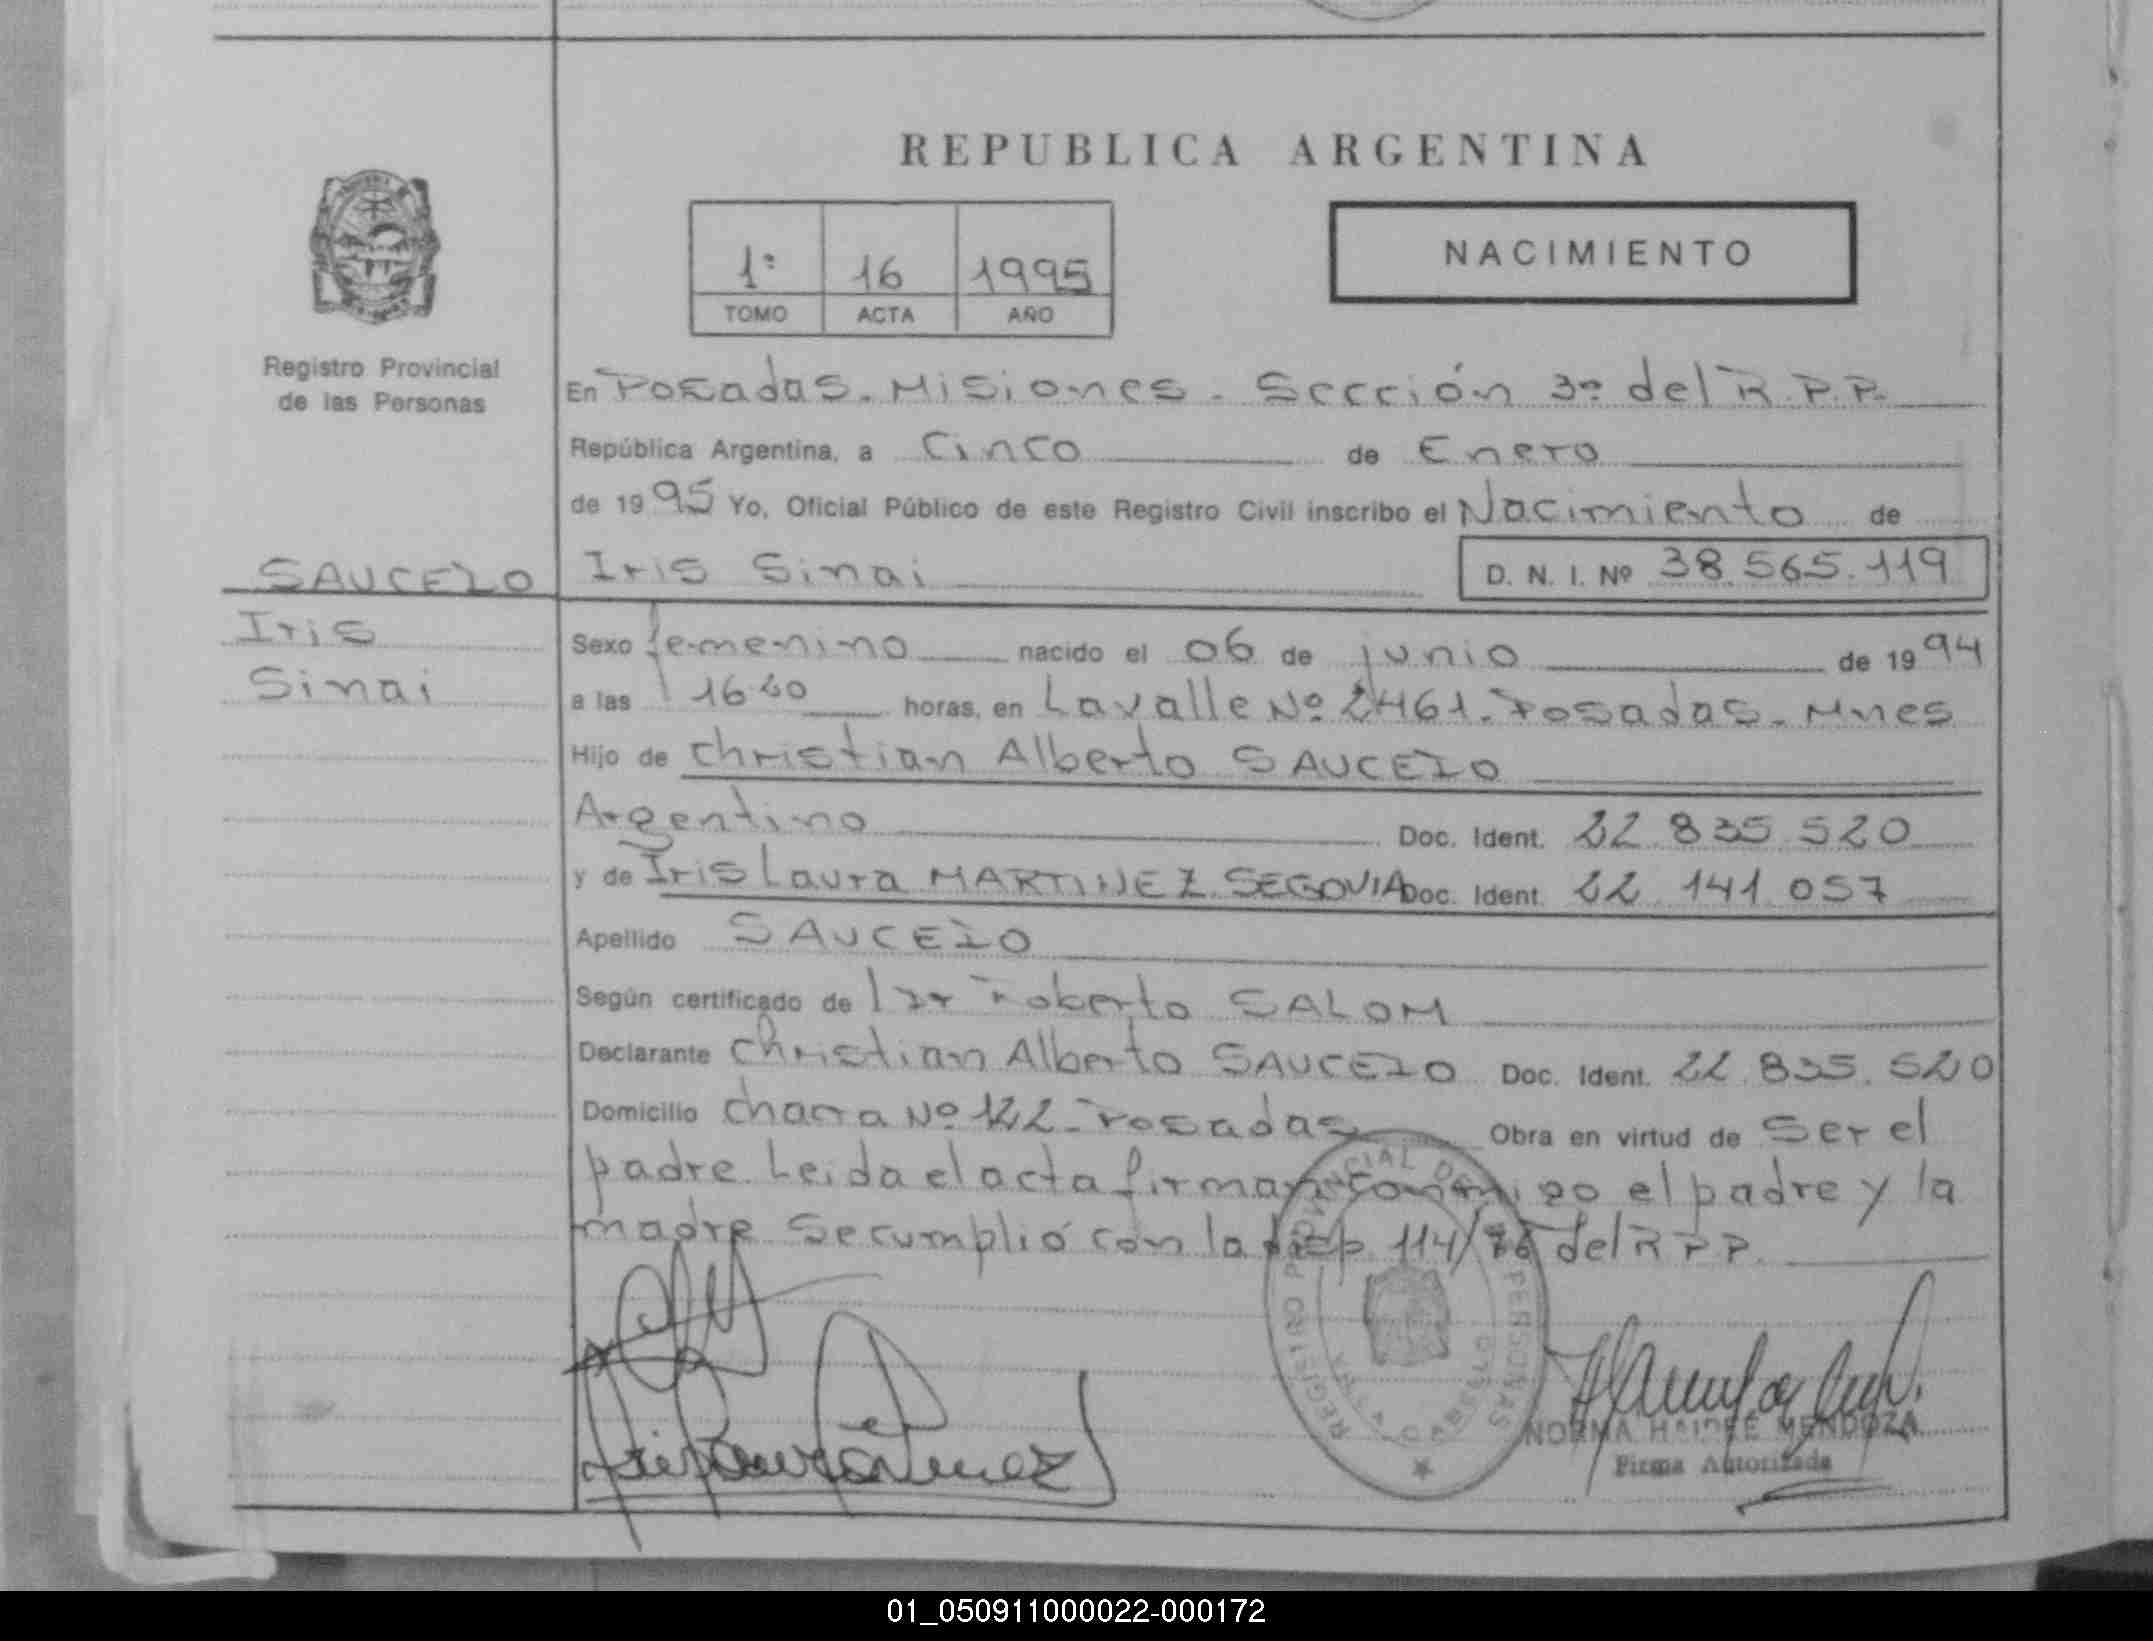 REPUBLICA ARGENTINA
1º 16 1995
TOMO ACTA AÑO
NACIMIENTO
Registro Provincial
de las Personas
En Posadas. Misiones. Sección 3ª del R.P.P.
República Argentina, a Cinco de Enero
de 1995 Yo, Oficial Público de este Registro Civil inscribo el Nacimiento de
SAUCEDO Iris Sinai D. N. I. Nº 38.565.119
Iris
Sinai
Sexo femenino nacido el 06 de junio de 1994
a las 16.20 horas, en Lavalle Nº 2461. Posadas. Mnes
Hijo de Christian Alberto SAUCEDO
Argentino Doc. Ident. 22.835.520
y de Iris Laura MARTINEZ SEGOVIA Doc. Ident. 22.141.057
Apellido SAUCEDO
Según certificado de Dr Roberto SALOM
Declarante Christian Alberto SAUCEDO Doc. Ident. 22.835.520
Domicilio Chacra Nº 122. Posadas Obra en virtud de Ser el
padre. Leida el acta firman conmigo el padre y la
madre Se cumplió con la Disp. 114/86 del R P P.
REGISTRO PROVINCIAL DE PERSONAS
NORMA HAIDEÉ MENDOZA
Firma Autorizada
01_050911000022-000172